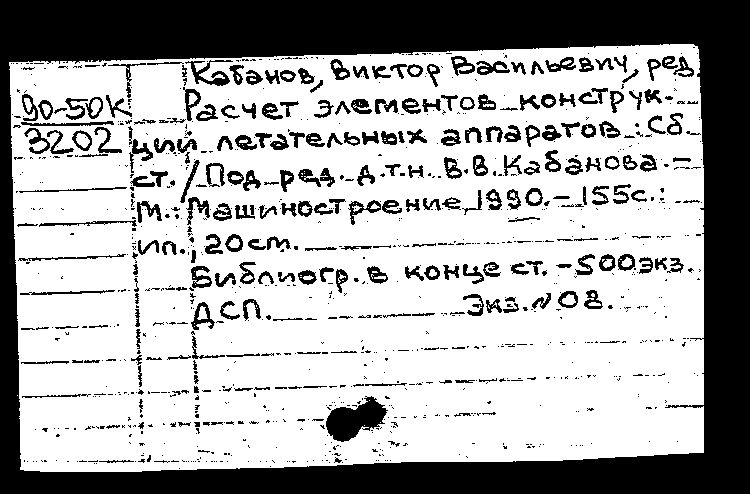 Кабанов, Виктор Васильевич, ред.
90-50К
3202
Расчет элементов конструк-
ции летательных аппаратов : Сб.
ст. / Под ред. д.т.н. В.В. Кабанова. –
М.: Машиностроение, 1990. – 155с.:
ил.; 20см.
Библиогр. в конце ст. – 500экз.
ДСП. Экз. № 08.